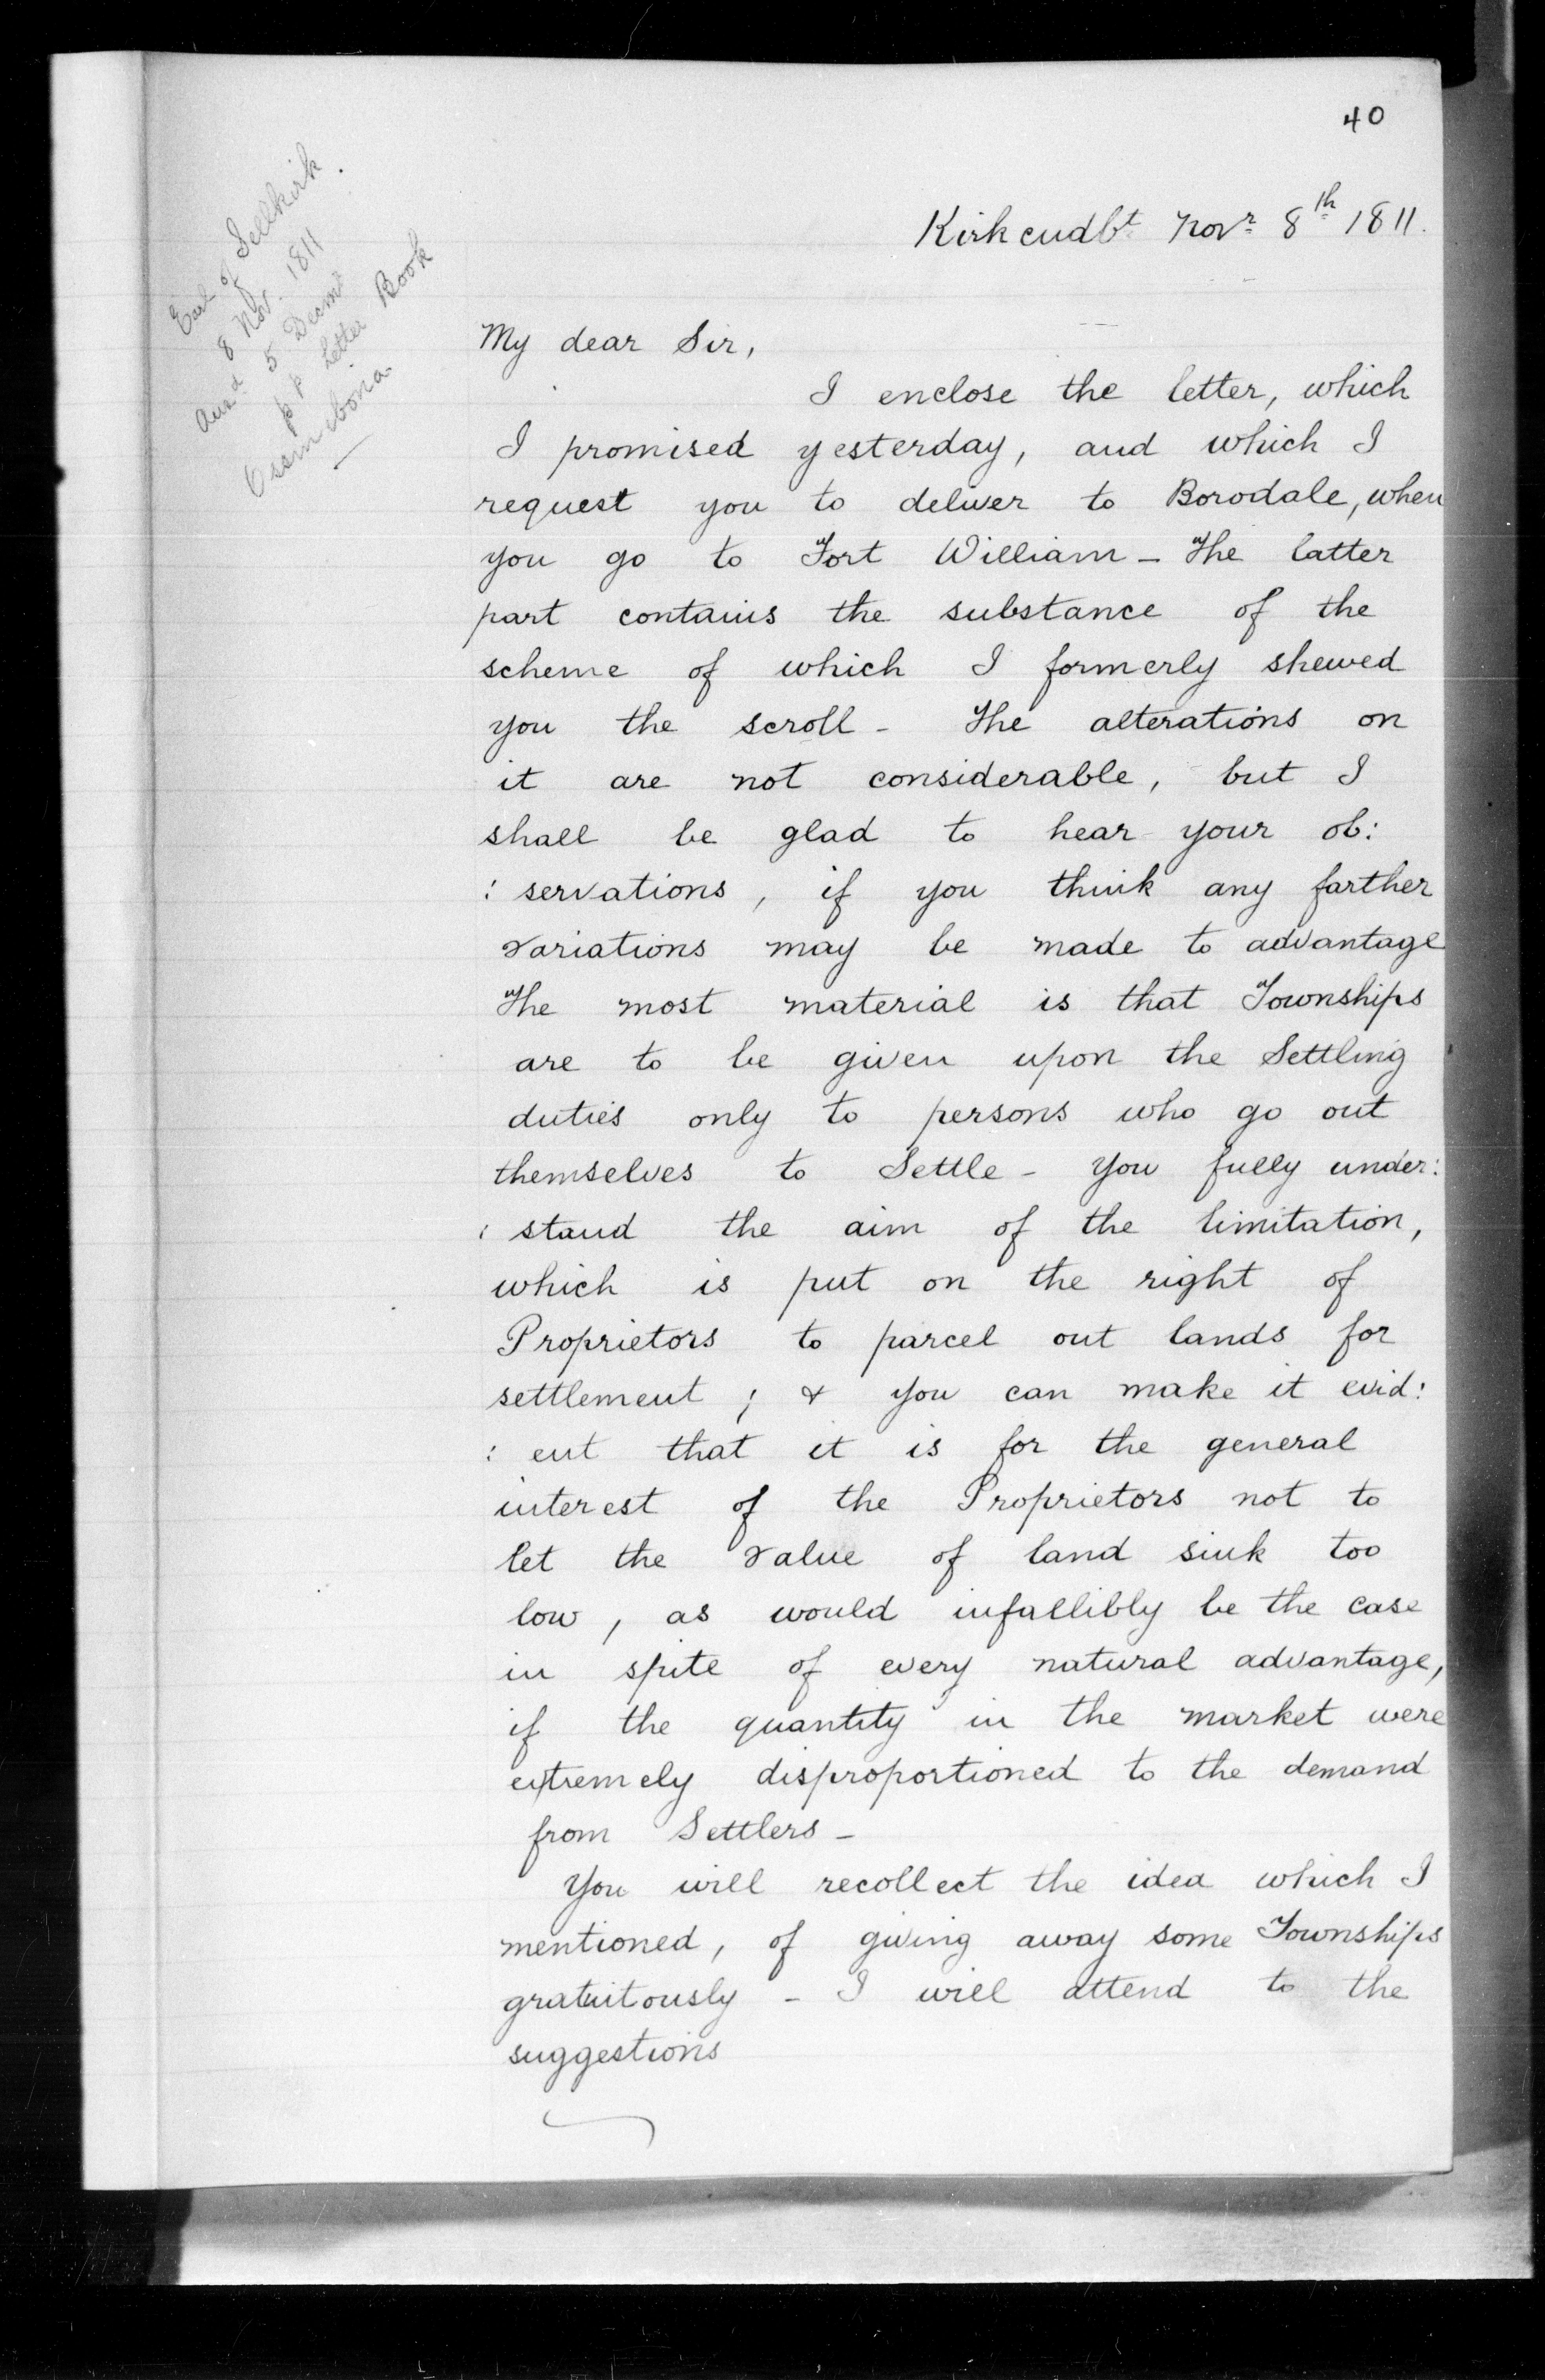 40
Earl of Sellkirk.
8 Nov. 1811
Ansd. 5 Decmr
p p Letter Book
Ossinibona
Kirkcudbt. Novr. 8th 1811.
My dear Sir,
I enclose the letter, which
I promised yesterday, and which I
request you to deliver to Borodale, when
you go to Fort William - The latter
part contains the substance of the
scheme of which I formerly shewed
you the scroll - The alterations on
it are not considerable, but I
shall be glad to hear your ob:
: servations, if you think any farther
variations may be made to advantage
The most material is that Townships
are to be given upon the Settling
duties only to persons who go out
themselves to Settle - You fully under:
: stand the aim of the limitation,
which is put on the right of
Proprietors to parcel out lands for
settlement ; & you can make it evid:
: ent that it is for the general
interest of the Proprietors not to
let the value of land sink too
low, as would infallibly be the case
in spite of every natural advantage,
if the quantity in the market were
extremely disproportioned to the demand
from Settlers -
You will recollect the idea which I
mentioned, of giving away some Townships
gratuitously - I will attend to the
suggestions